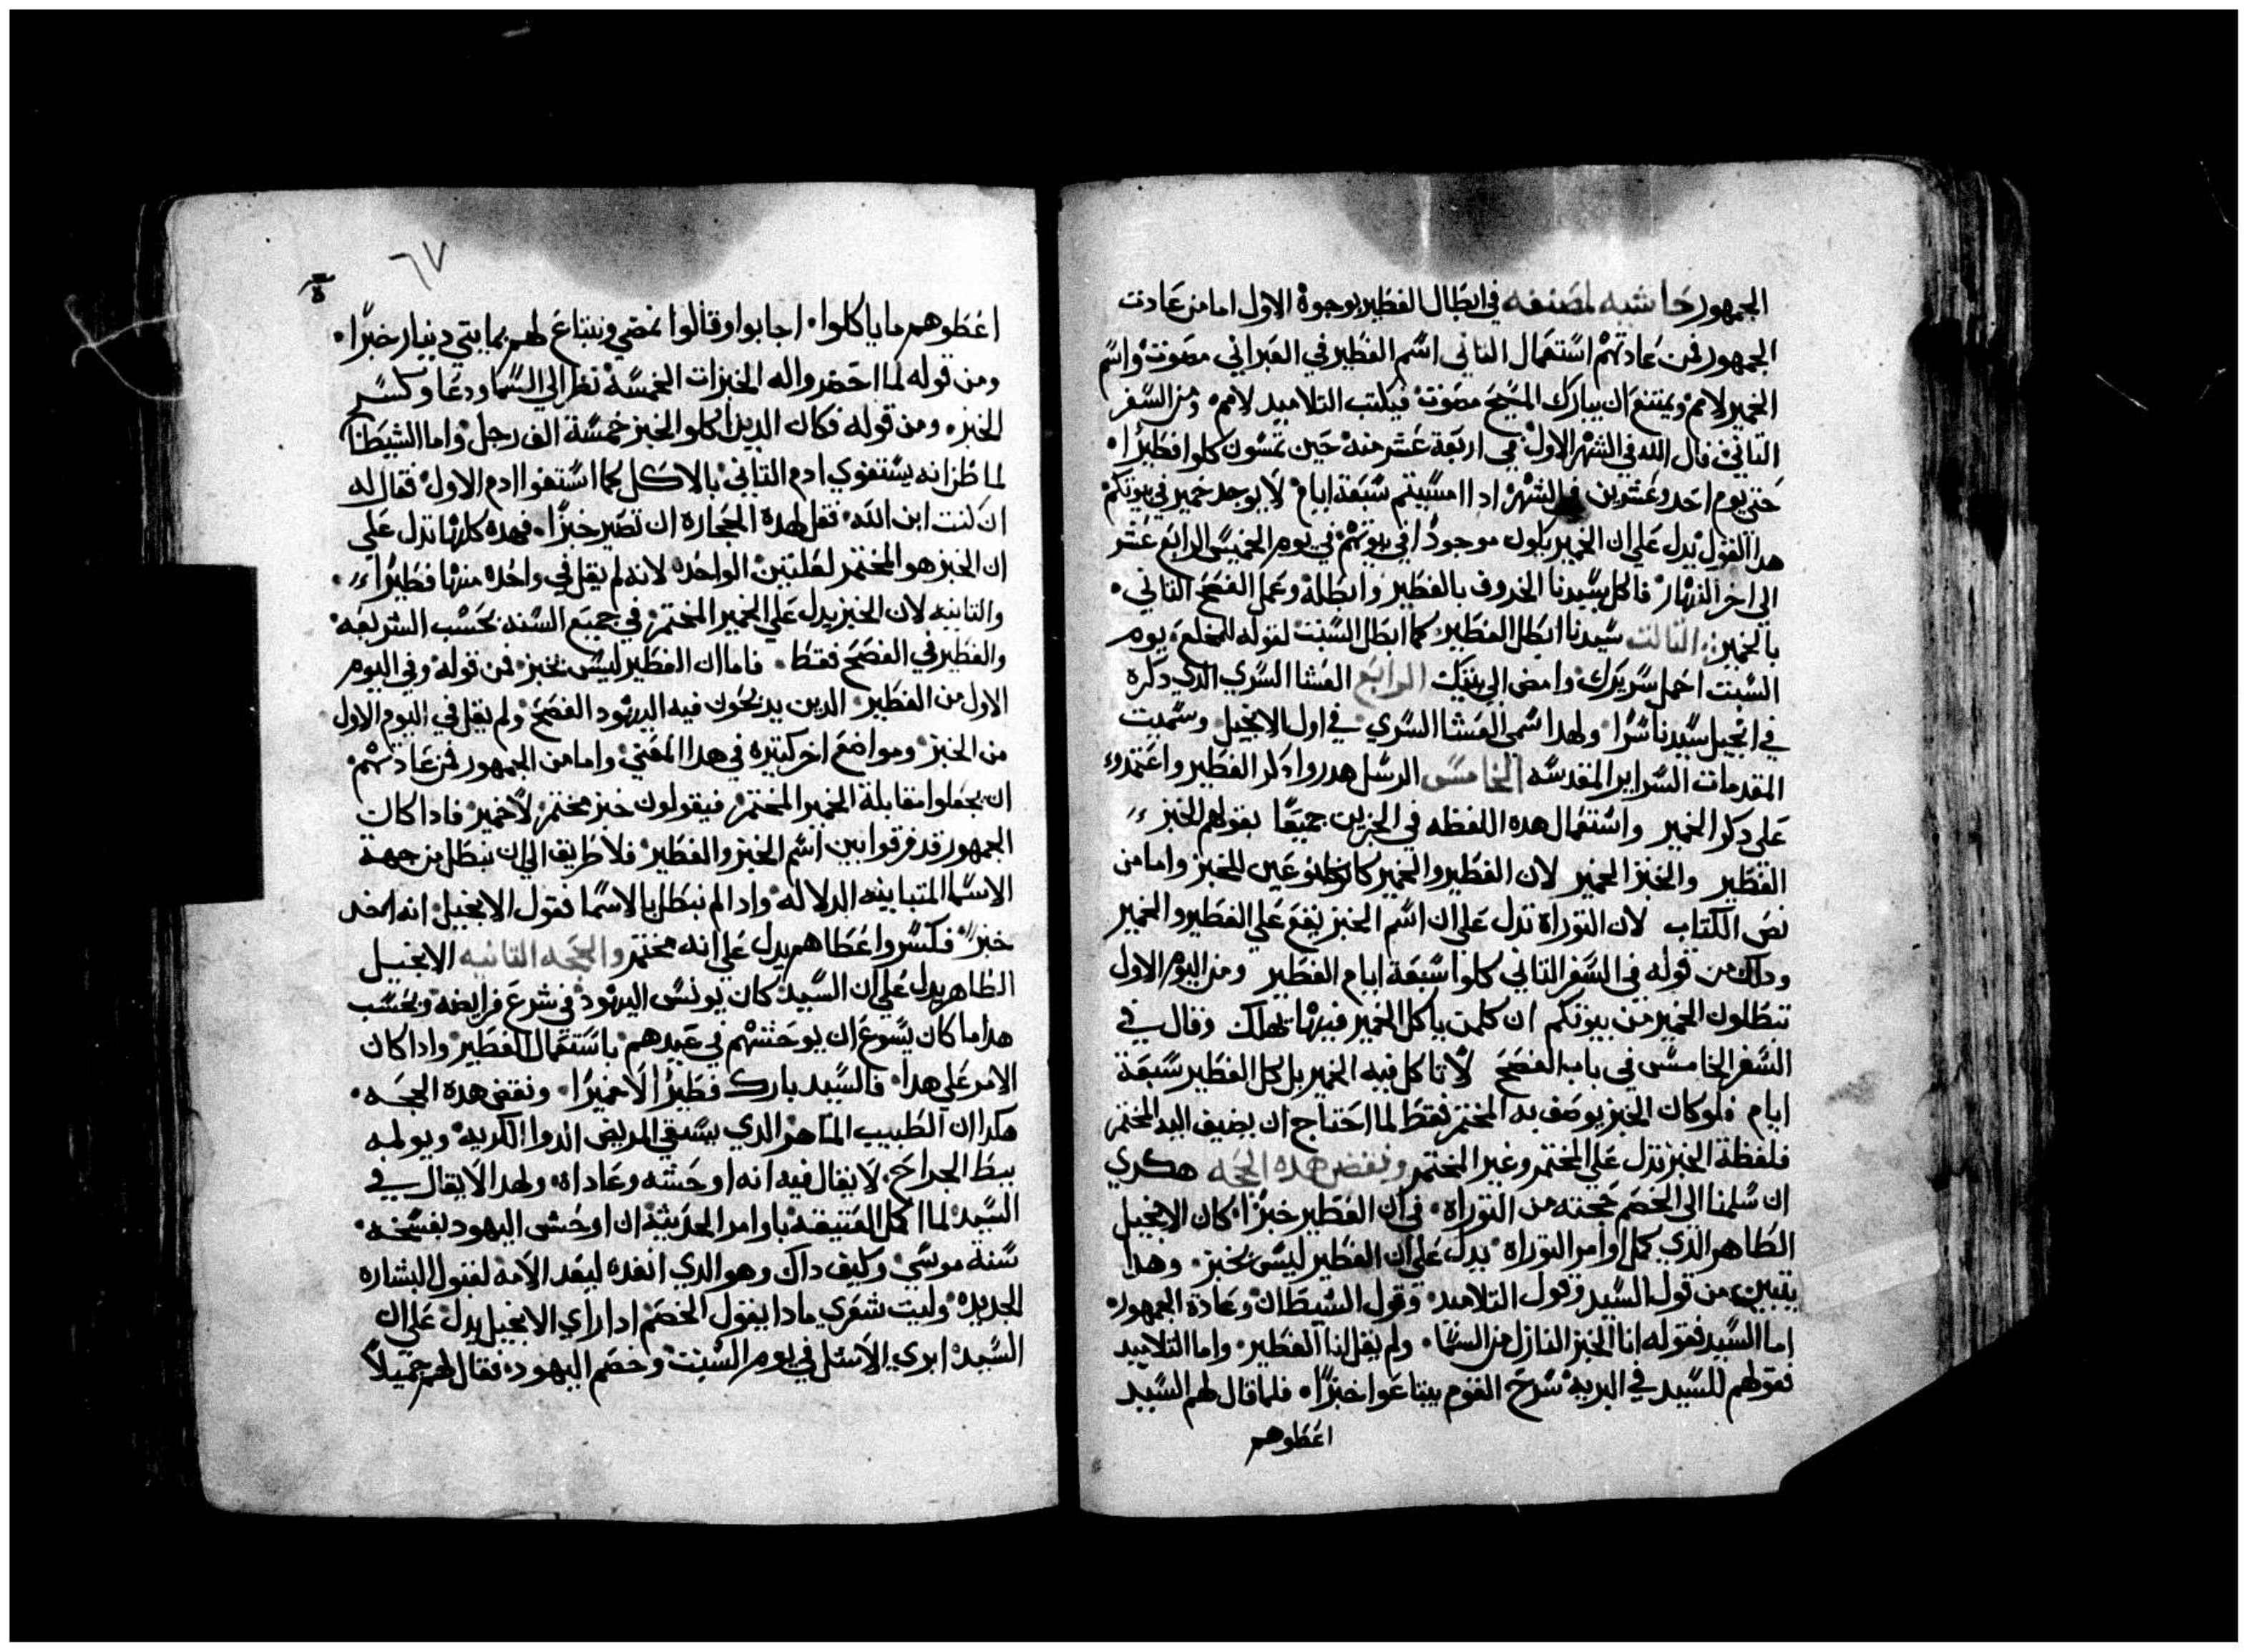 الجمهور حاشيه لمصنفه في ابطال الفطير بوجوة الاول اما من عادت
الجمهور فمن عادتهم استعمال التاني اسم الفطير في العبراني مصوت واسم
الخمير لامم ويمتنع ان يبارك المسيح مصوت فيكتب التلاميد لامم ومن السفر
التاني قال الله في الشهر الاول في اربعة عشر منه حين تمسون كلوا فطيرا
حتي يوم احد وعشرين في الشهر ادا امسيتم سبعة ايام لا يوجد خمير في بيوتكم
هدا القول يدل علي ان الخمير يكون موجودا في بيوتهم في يوم الخميس الرابع عشر
الي اخر النهار فاكل سيدنا الخروف بالفطير وابطله وعمل الفصح التاني
بالخمير التالت سيدنا ابطل الفطير كما ابطل السبت لقوله للمخلع يوم
السبت احمل سريرك وامض الي بيتك الرابع العشا السري الدي دكره
في انجيل سيدنا سرا ولهدا سمي العشا السري في اول الانجيل وسميت
المقدمات السراير المقدسه الخامس الرسل هدروا دكر الفطير واعتمدوا
علي دكر الخمير واستعمال هده اللفظه في الخبزين جميعا بقولهم الخبز
الفطير والخبز الخمير لان الفطير والخمير كانا نوعين للخبز واما من
نص الكتاب لان التوراة تدل علي ان اسم الخبز يقع علي الفطير والخمير
وداك من قوله في السفر التاني كلوا سبعة ايام الفطير ومن اليوم الاول
تبطلون الخمير من بيوتكم ان كلمن ياكل الخمير فيها يهلك وقال في
السفر الخامس في باب الفصح لا تاكل فيه الخمير بل كل الفطير سبعة
ايام فلو كان الخبز يوصف به المختمر فقط لما احتاج ان يضيف اليه المختمر
فلفظة الخبز تدل علي المختمر وغير المختمر ونقض هده الحجه هكدي
ان سلمنا الي الخصم حجته من التوراة في ان الفطير خبزا كان الانجيل
الطاهر الدي كمل اوامر التوراة يدل علي ان الفطير ليس بخبز وهدا
يتبين من قول السيد وقول التلاميد وقول الشيطان وعادة الجمهور
اما السيد فقوله انا الخبز النازل من السما ولم يقل انا الفطير واما التلاميد
فقولهم للسيد في البريه سرح القوم يبتاعوا خبزا فلما قال لهم السيد
اعطوهم
٦٧
اعطوهم ما ياكلوا اجابوا وقالوا نمضي ونبتاع لهم بمايتي دينار خبزا
ومن قوله لما احضروا له الخبزات الخمسة نظر الي السما ودعا وكسر
الخبز ومن قوله فكان الدين اكلوا الخبز خمسة الف رجل واما الشيطان
لما ظن انه يستغوي ادم التاني بالاكل كما استغوا ادم الاول فقال له
ان كنت ابن الله فقل لهدة الحجارة ان تصير خبزا فهده كلها تدل علي
ان الخبز هو المختمر لعلتين الواحده لانه لم يقل في واحده منها فطيرا
والتانيه لان الخبز يدل علي الخمير المختمر في جميع السنه بحسب الشريعه
والفطير في الفصح فقط فاما ان الفطير ليس بخبز فمن قوله وفي اليوم
الاول من الفطير الدين يدبحون فيه اليهود الفصح ولم يقل في اليوم الاول
من الخبز ومواضع اخر كتيره في هدا المعني واما من الجمهور فمن عادتهم
ان يجعلوا مقابلة الخمير المختمر فيقولون خبز مختمر لا خمير فادا كان
الجمهور قد فرقوا بين اسم الخبز والفطير فلا طريق الي ان نبطل من جهة
الاسما المتباينه الدلاله وادا لم نبطل بالاسما فقول الانجيل انه اخد
خبز فكسر واعطاهم يدل علي انه مختمر والحجه التانيه الانجيل
الطاهر يدل علي ان السيد كان يونس اليهود في شرع فرايضه وبحسب
هدا ما كان يسوع ان يوحشهم في عيدهم باستعمال الفطير وادا كان
الامر علي هدا فالسيد بارك فطيرا لا خميرا ونقض هده الحجه
هكدا ان الطبيب الماهر الدي يسقي المريض الدوا الكريه ويولمه
ببط الجراح لا يقال فيه انه اوحشه وعاداة ولهدا لا يقال في
السيد لما اكمل العتيقه باوامر الحديتة ان اوحش اليهود بفسخه
سنة موسي وكيف داك وهو الدي انفده ليعد الامه لقبول البشاره
الجديده وليت شعري مادا يقول الخصم ادا راي الانجيل يدل علي ان
السيد ابري الاسل في يوم السبت وخصم اليهود فقال لهم جميلا